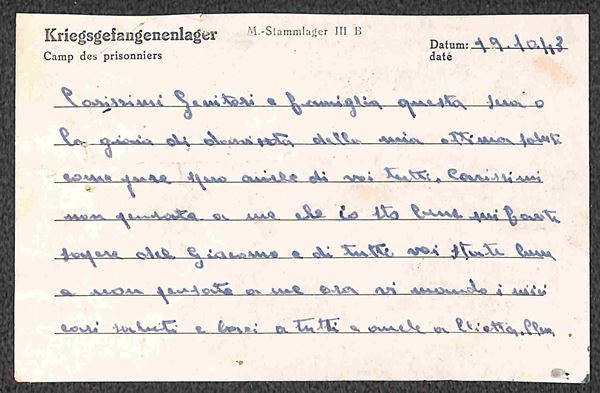 Kriegsgefangenenlager M.-Stammlager III B
Camp des prisonniers
Datum: 19.10.43
daté
Carissimi Genitori e famiglia questa sera o
la gioia di darvi della mia ottima
come pure spero anche di voi tutti. Carissimi
non pensate a me che io sto bene mi fate
sapere del Giacomo e di tutti voi state bene
e non pensate a me ora vi mando i miei
cari saluti e baci a tutti e anche a